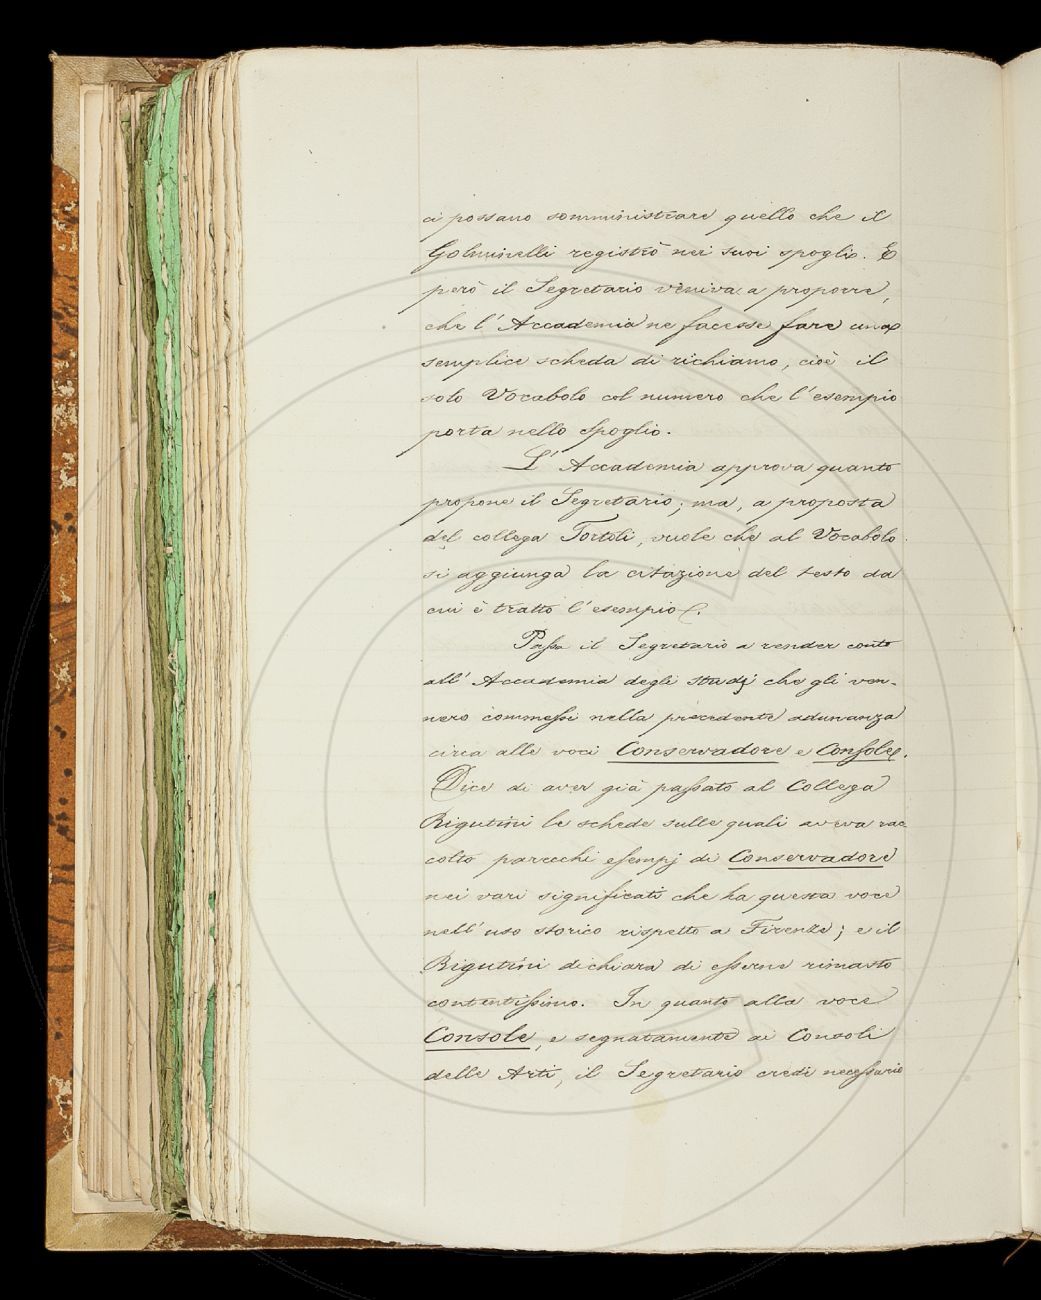 ci possano somministrare quello che il
Golminelli registrò nei suoi spogli. E
però il Segretario veniva a proporre,
che l'Accademia ne facesse fare una
semplice scheda di richiamo, cioè il
solo Vocabolo col numero che l'esempio
porta nello Spoglio.
L'Accademia approva quanto
propone il Segretario; ma, a proposta
del collega Tortoli, vuole che al Vocabolo
si aggiunga la citazione del testo da
cui è tratto l'esempio.
Passa il Segretario a render conto
all'Accademia degli studj che gli ven-
nero commessi nella precedente adunanza
circa alle voci Conservadore e Console.
Dice di aver già passato al Collega
Rigutini le schede sulle quali aveva rac
colto parecchi esempj di Conservadore
nei vari significati che ha questa voce
nell'uso storico rispetto a Firenze; e il
Rigutini dichiara di esserne rimasto
contentissimo. In quanto alla voce
Console, e segnatamente ai Consoli
delle Arti, il Segretario credè necessario